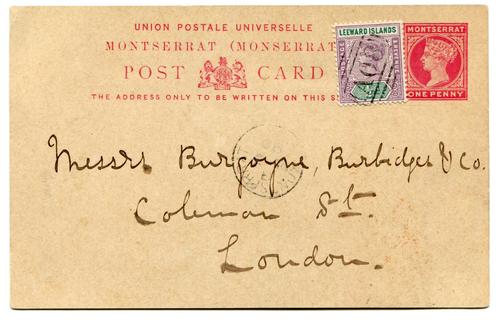 UNION POSTALE UNIVERSELLE
MONTSERRAT (MONSERRAT
POST CARD
THE ADDRESS ONLY TO BE WRITTEN ON THIS S
LEEWARD ISLANDS
POSTAGE
REVENUE
A08
MONTSERRAT
ONE PENNY
Messrs Burgoyne, Burbidges & Co.
Coleman St.
London.